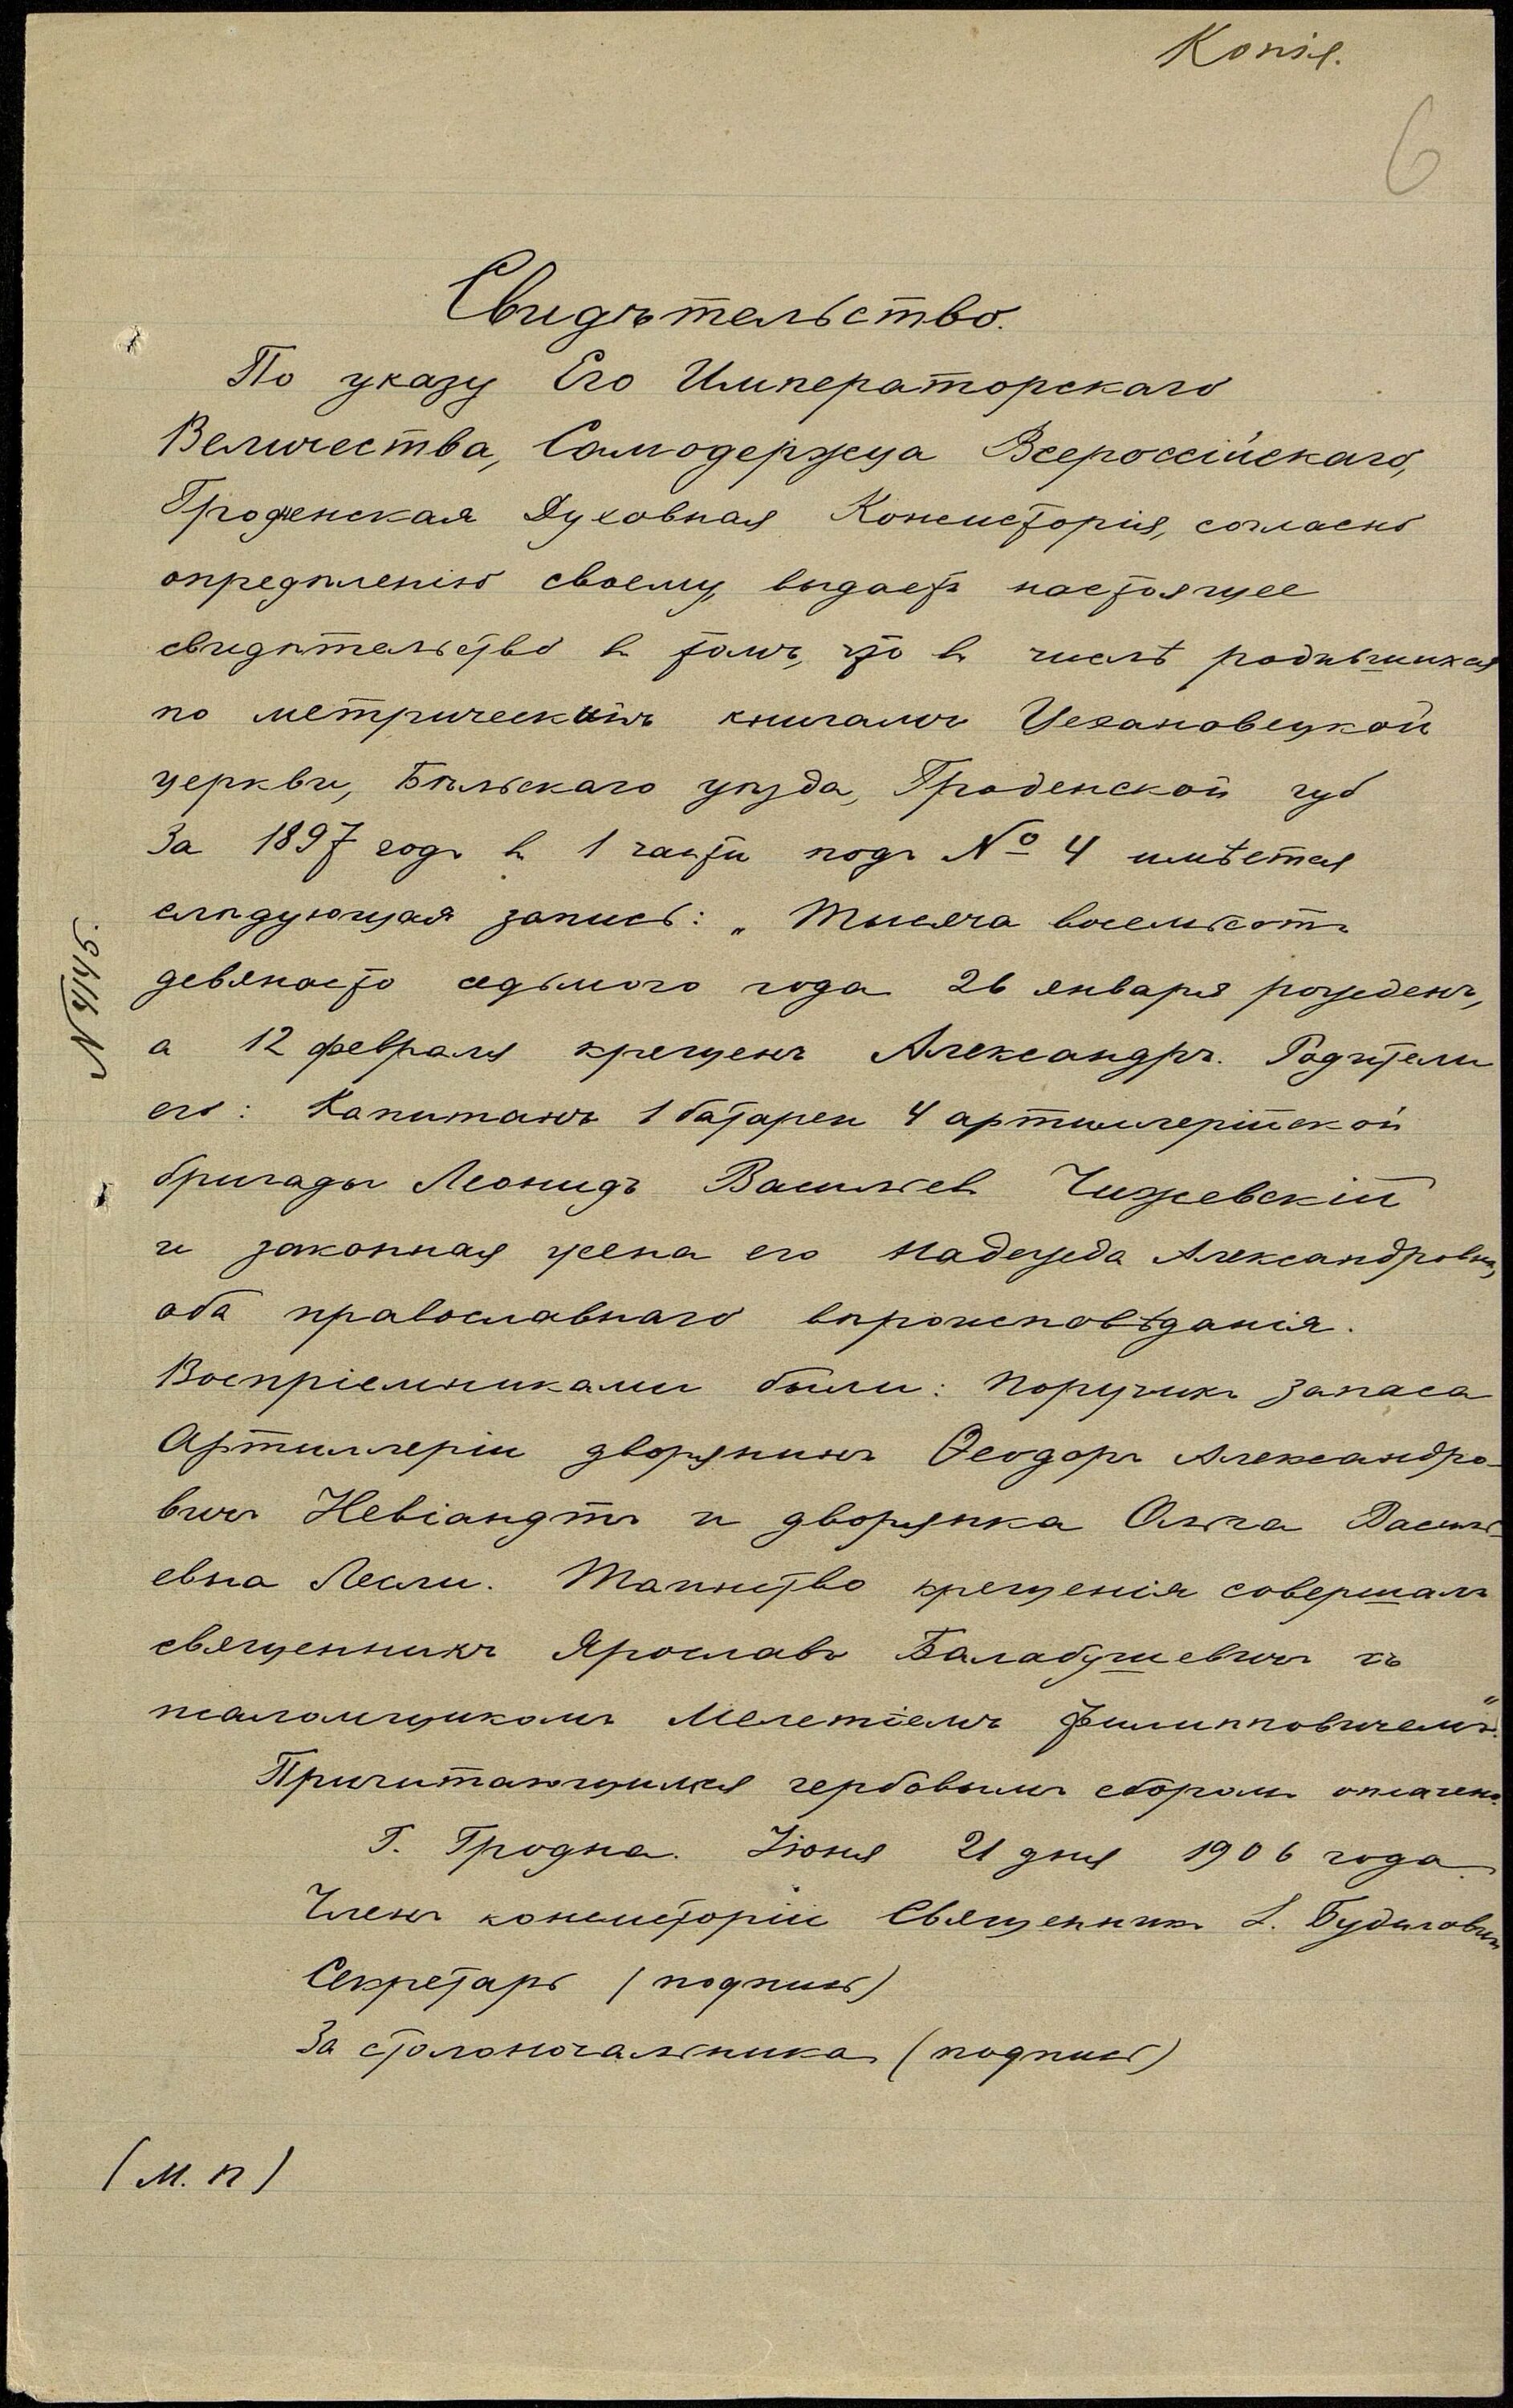 Копія.
6
Свидѣтельство.
По указу Его Императорскаго
Величества, Самодержца Всероссійскаго,
Гродненская Духовная Консисторія, согласно
опредѣленію своему, выдаетъ настоящее
свидѣтельство въ томъ, что въ числѣ родившихся
по метрическимъ книгамъ Цехановецкой
церкви, Бѣльскаго уѣзда, Гроденской губ
За 1897 годъ въ 1 части подъ № 4 имѣется
слѣдующая запись: „Тысяча восемьсотъ
девяносто седьмого года 26 января рожденъ,
а 12 февраля крещенъ Александръ. Родители
его: Капитанъ 1 батареи 4 артиллерійской
бригады Леонидъ Васильевъ Чижевскій
и законная жена его Надежда Александровна,
оба православнаго вѣроисповѣданія.
Воспріемниками были: Поручикъ запаса
Артиллеріи дворянинъ Ѳеодоръ Александро-
вичъ Невіандтъ и дворянка Ольга Василь-
евна Лесли. Таинство крещенія совершалъ
священникъ Ярославъ Балабушевичъ съ
псаломщикомъ Мелетіемъ Филипповичемъ".
Причитающимся гербовымъ сборомъ оплачено.
Г. Гродна. Іюня 21 дня 1906 года.
Членъ консисторіи Священникъ
Секретарь (подпись)
За столоначальника (подпись)
(М. П)